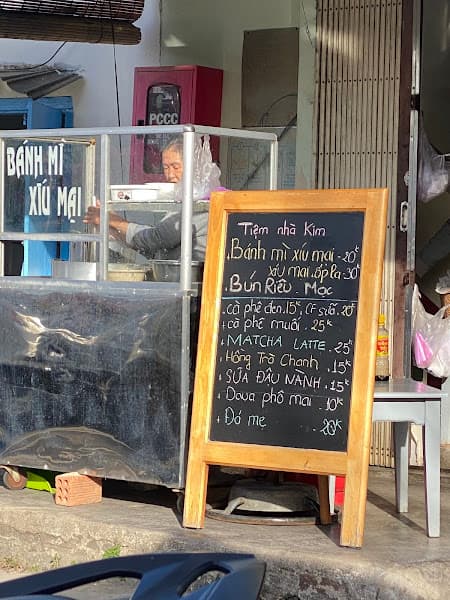 PCCC
BÁNH MÌ
XÍU MẠI
Tiệm nhà Kim
Bánh mì xíu mại - 20K
xíu mại, ốp la - 30K
Bún Riêu . Mọc
cà phê đen. 15K, CF sữa. 20K
+ cà phê muối . 25K
+ MATCHA LATTE . 25K
+ Hồng Trà Chanh . 15K
+ SỮA ĐẬU NÀNH . 15K
+ Daua phô mai - 10K
+ Đá me - 20K